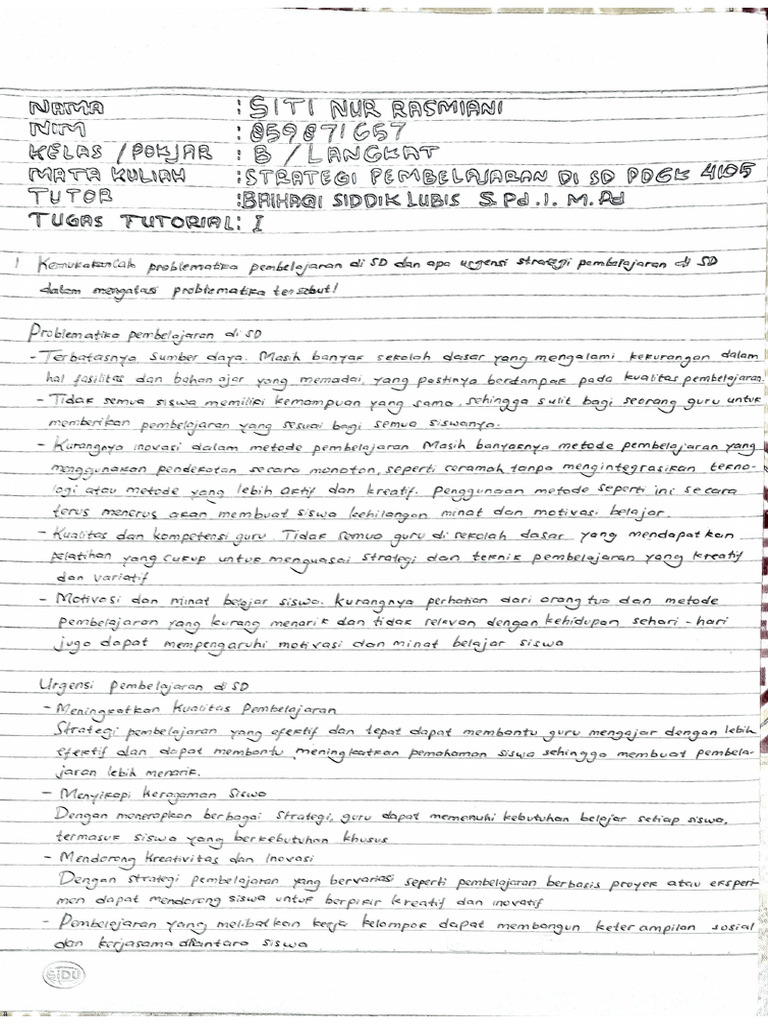 NAMA : SITI NUR RASMIANI
NIM : 859871657
KELAS / POKJAR : B / LANGKAT
MATA KULIAH : STRATEGI PEMBELAJARAN DI SD PDGK 4105
TUTOR : BAIHAQI SIDDIK LUBIS S.Pd.I. M.Pd
TUGAS TUTORIAL : I
1 Kemukakanlah problematika pembelajaran di SD dan apa urgensi strategi pembelajaran di SD
dalam mengatasi problematika tersebut!
Problematika pembelajaran di SD
- Terbatasnya sumber daya. Masih banyak sekolah dasar yang mengalami kekurangan dalam
hal fasilitas dan bahan ajar yang memadai, yang pastinya berdampak pada kualitas pembelajaran.
- Tidak semua siswa memiliki kemampuan yang sama, sehingga sulit bagi seorang guru untuk
memberikan pembelajaran yang sesuai bagi semua siswanya.
- Kurangnya inovasi dalam metode pembelajaran Masih banyaknya metode pembelajaran yang
menggunakan pendekatan secara monoton, seperti ceramah tanpa mengintegrasikan tekno-
logi atau metode yang lebih aktif dan kreatif. Penggunaan metode seperti ini secara
terus menerus akan membuat siswa kehilangan minat dan motivasi belajar.
- Kualitas dan kompetensi guru. Tidak semua guru di sekolah dasar yang mendapatkan
pelatihan yang cukup untuk menguasai strategi dan teknik pembelajaran yang kreatif
dan variatif
- Motivasi dan minat belajar siswa. Kurangnya perhatian dari orang tua dan metode
pembelajaran yang kurang menarik dan tidak relevan dengan kehidupan sehari-hari
juga dapat mempengaruhi motivasi dan minat belajar siswa
Urgensi pembelajaran di SD
- Meningkatkan Kualitas Pembelajaran
Strategi pembelajaran yang efektif dan tepat dapat membantu guru mengajar dengan lebih
efektif dan dapat membantu meningkatkan pemahaman siswa sehingga membuat pembela-
jaran lebih menarik.
- Menyikapi Keragaman Siswa
Dengan menerapkan berbagai strategi, guru dapat memenuhi kebutuhan belajar setiap siswa,
termasuk siswa yang berkebutuhan khusus
- Mendorong Kreativitas dan Inovasi
Dengan strategi pembelajaran yang bervariasi seperti pembelajaran berbasis proyek atau eksperi-
men dapat mendorong siswa untuk berpikir kreatif dan inovatif
- Pembelajaran yang melibatkan kerja kelompok dapat membangun keterampilan sosial
dan kerjasama diantara siswa
SIDU